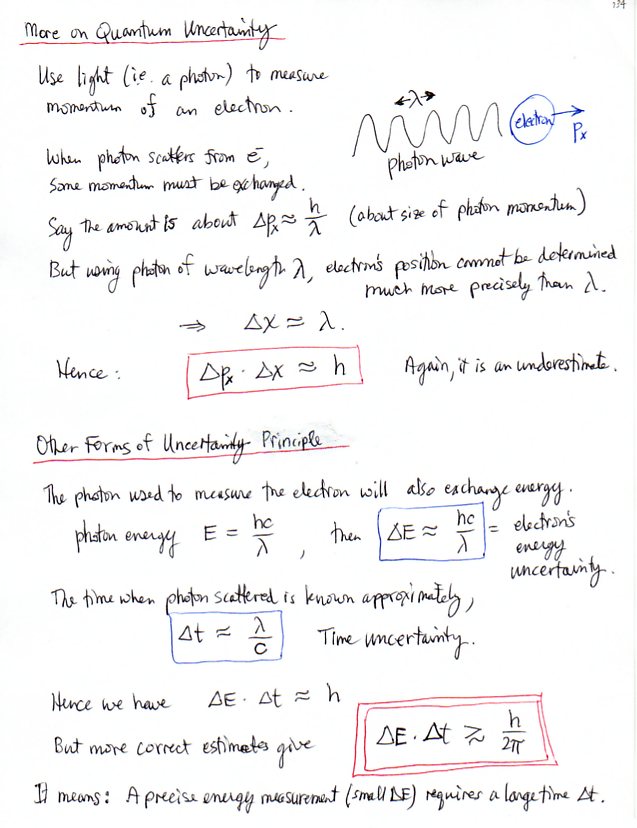 134
More on Quantum Uncertainity
Use light (i.e. a photon) to measure
momentum of an electron.
λ
electron
Px
photon wave
When photon scatters from e⁻,
Some momentum must be exchanged.
Say the amount is about Δpx ≈ h/λ (about size of photon momentum)
But using photon of wavelength λ, electron's position cannot be determined
much more precisely than λ.
⇒ Δx ≈ λ.
Hence: Δpx · Δx ≈ h Again, it is an underestimate.
Other Forms of Uncertainity Principle
The photon used to measure the electron will also exchange energy.
photon energy E = hc/λ, then ΔE ≈ hc/λ = electron's
energy
uncertainty.
The time when photon scattered is known approximately,
Δt ≈ λ/c Time uncertainty.
Hence we have ΔE · Δt ≈ h
But more correct estimates give ΔE · Δt ≳ h/2π
It means: A precise energy measurement (small ΔE) requires a large time Δt.